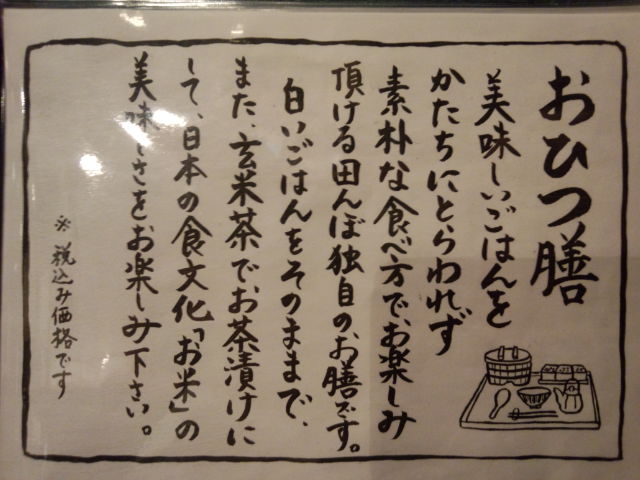 おひつ膳
美味しいごはんを
かたちにとらわれず
素朴な食べ方でお楽しみ
頂ける田んぼ独自のお膳です。
白いごはんをそのままで、
また、玄米茶でお茶漬けに
して、日本の食文化「お米」の
美味しさをお楽しみ下さい。
※税込み価格です